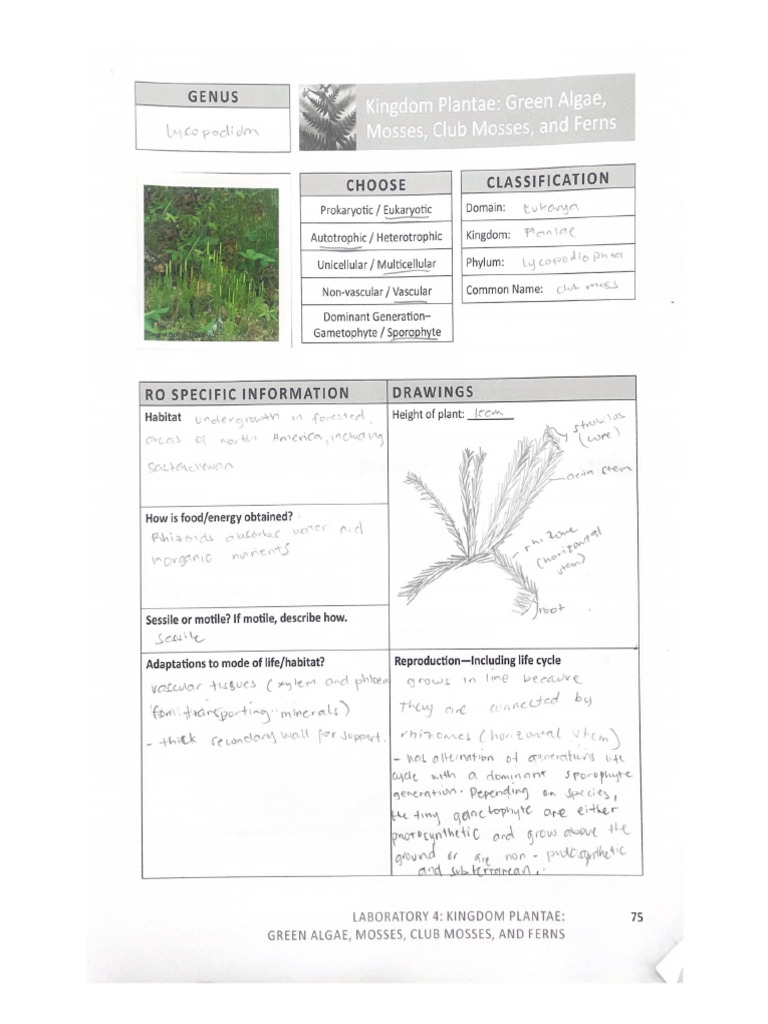 GENUS
Lycopodium
Kingdom Plantae: Green Algae,
Mosses, Club Mosses, and Ferns
CHOOSE
Prokaryotic / Eukaryotic
Autotrophic / Heterotrophic
Unicellular / Multicellular
Non-vascular / Vascular
Dominant Generation–
Gametophyte / Sporophyte
CLASSIFICATION
Domain: Eukarya
Kingdom: Plantae
Phylum: Lycopodiophta
Common Name: club moss
RO SPECIFIC INFORMATION
Habitat undergrowth in forested
areas of north America, including
Sactachewan
How is food/energy obtained?
Rhizoids absorbs water and
inorganic nutrients
Sessile or motile? If motile, describe how.
Sessile
Adaptations to mode of life/habitat?
vascular tissues (xylem and phloem
transporting minerals)
- thick secondary wall for support.
DRAWINGS
Height of plant:
strobilus
(cone)
stem
rhizone
(horizontal
stem)
root
Reproduction—Including life cycle
grows in line because
They are connected by
rhizomes (horizontal stem)
- has alternation of generations life
cycle with a dominant sporophyte
generation. Depending on species,
the tiny gametophyte are either
photosynthetic and grow above the
ground or are non - photosynthetic
and subterranean.
LABORATORY 4: KINGDOM PLANTAE:
GREEN ALGAE, MOSSES, CLUB MOSSES, AND FERNS
75